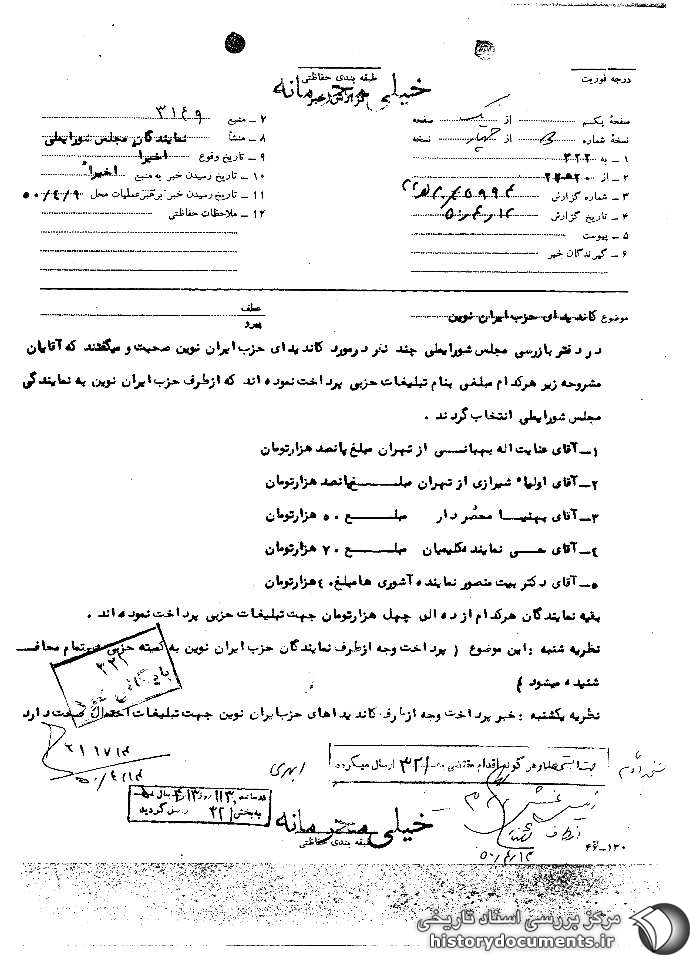 درجه فوریت
طبقه بندی حفاظتی
خیلی محرمانه
گزارش خبر
صفحه یکم از یک صفحه
نسخه شماره از چهار نسخه
۱ - به ۳۲۲
۲ - از
۳ - شماره گزارش
۴ - تاریخ گزارش ۵۰/۴/۱۲
۵ - پیوست
۶ - گیرندگان خبر
۷ - منبع ۳۱۴۹
۸ - منشأ نمایندگان مجلس شورایملی
۹ - تاریخ وقوع اخیرا"
۱۰ - تاریخ رسیدن خبر به منبع اخیرا"
۱۱ - تاریخ رسیدن خبر برهبر عملیات محل ۵۰/۴/۹
۱۲ - ملاحظات حفاظتی
موضوع کاندیدای حزب ایران نوین
عطف
پیرو
در دفتر بازرسی مجلس شورایملی چند نفر در مورد کاندیدای حزب ایران نوین صحبت و میگفتند که آقایان
مشروحه زیر هر کدام مبلغی بنام تبلیغات حزبی پرداخت نموده اند که از طرف حزب ایران نوین به نمایندگی
مجلس شورایملی انتخاب گردند .
۱ - آقای عنایت اله بهبهانی از تهران مبلغ پانصد هزارتومان
۲ - آقای اولیاء شیرازی از تهران مبلغ پانصد هزارتومان
۳ - آقای بهنیا محضر دار مبلغ ۵۰ هزارتومان
۴ - آقای نماینده کلیمیان مبلغ ۷۰ هزارتومان
۵ - آقای دکتر بیت منصور نماینده آشوری ها مبلغ ۴۰ هزارتومان
بقیه نمایندگان هر کدام از ده الی چهل هزارتومان جهت تبلیغات حزبی پرداخت نموده اند .
نظریه شنبه : این موضوع ( پرداخت وجه از طرف نمایندگان حزب ایران نوین به کمیته حزبی در تمام محافل
شنیده میشود )
نظریه یکشنبه : خبر پرداخت وجه از طرف کاندیداهای حزب ایران نوین جهت تبلیغات احتمال صحت دارد
۳۲۲
بایگانی شود
جهت استحضار و هر گونه اقدام مقتضی به ۳۲۱ ارسال میگردد
۵۰/۴/۱۲
به بخش ۳۲۱ ارسال گردید
خیلی محرمانه
طبقه بندی حفاظتی
مرکز بررسی اسناد تاریخی
historydocuments.ir